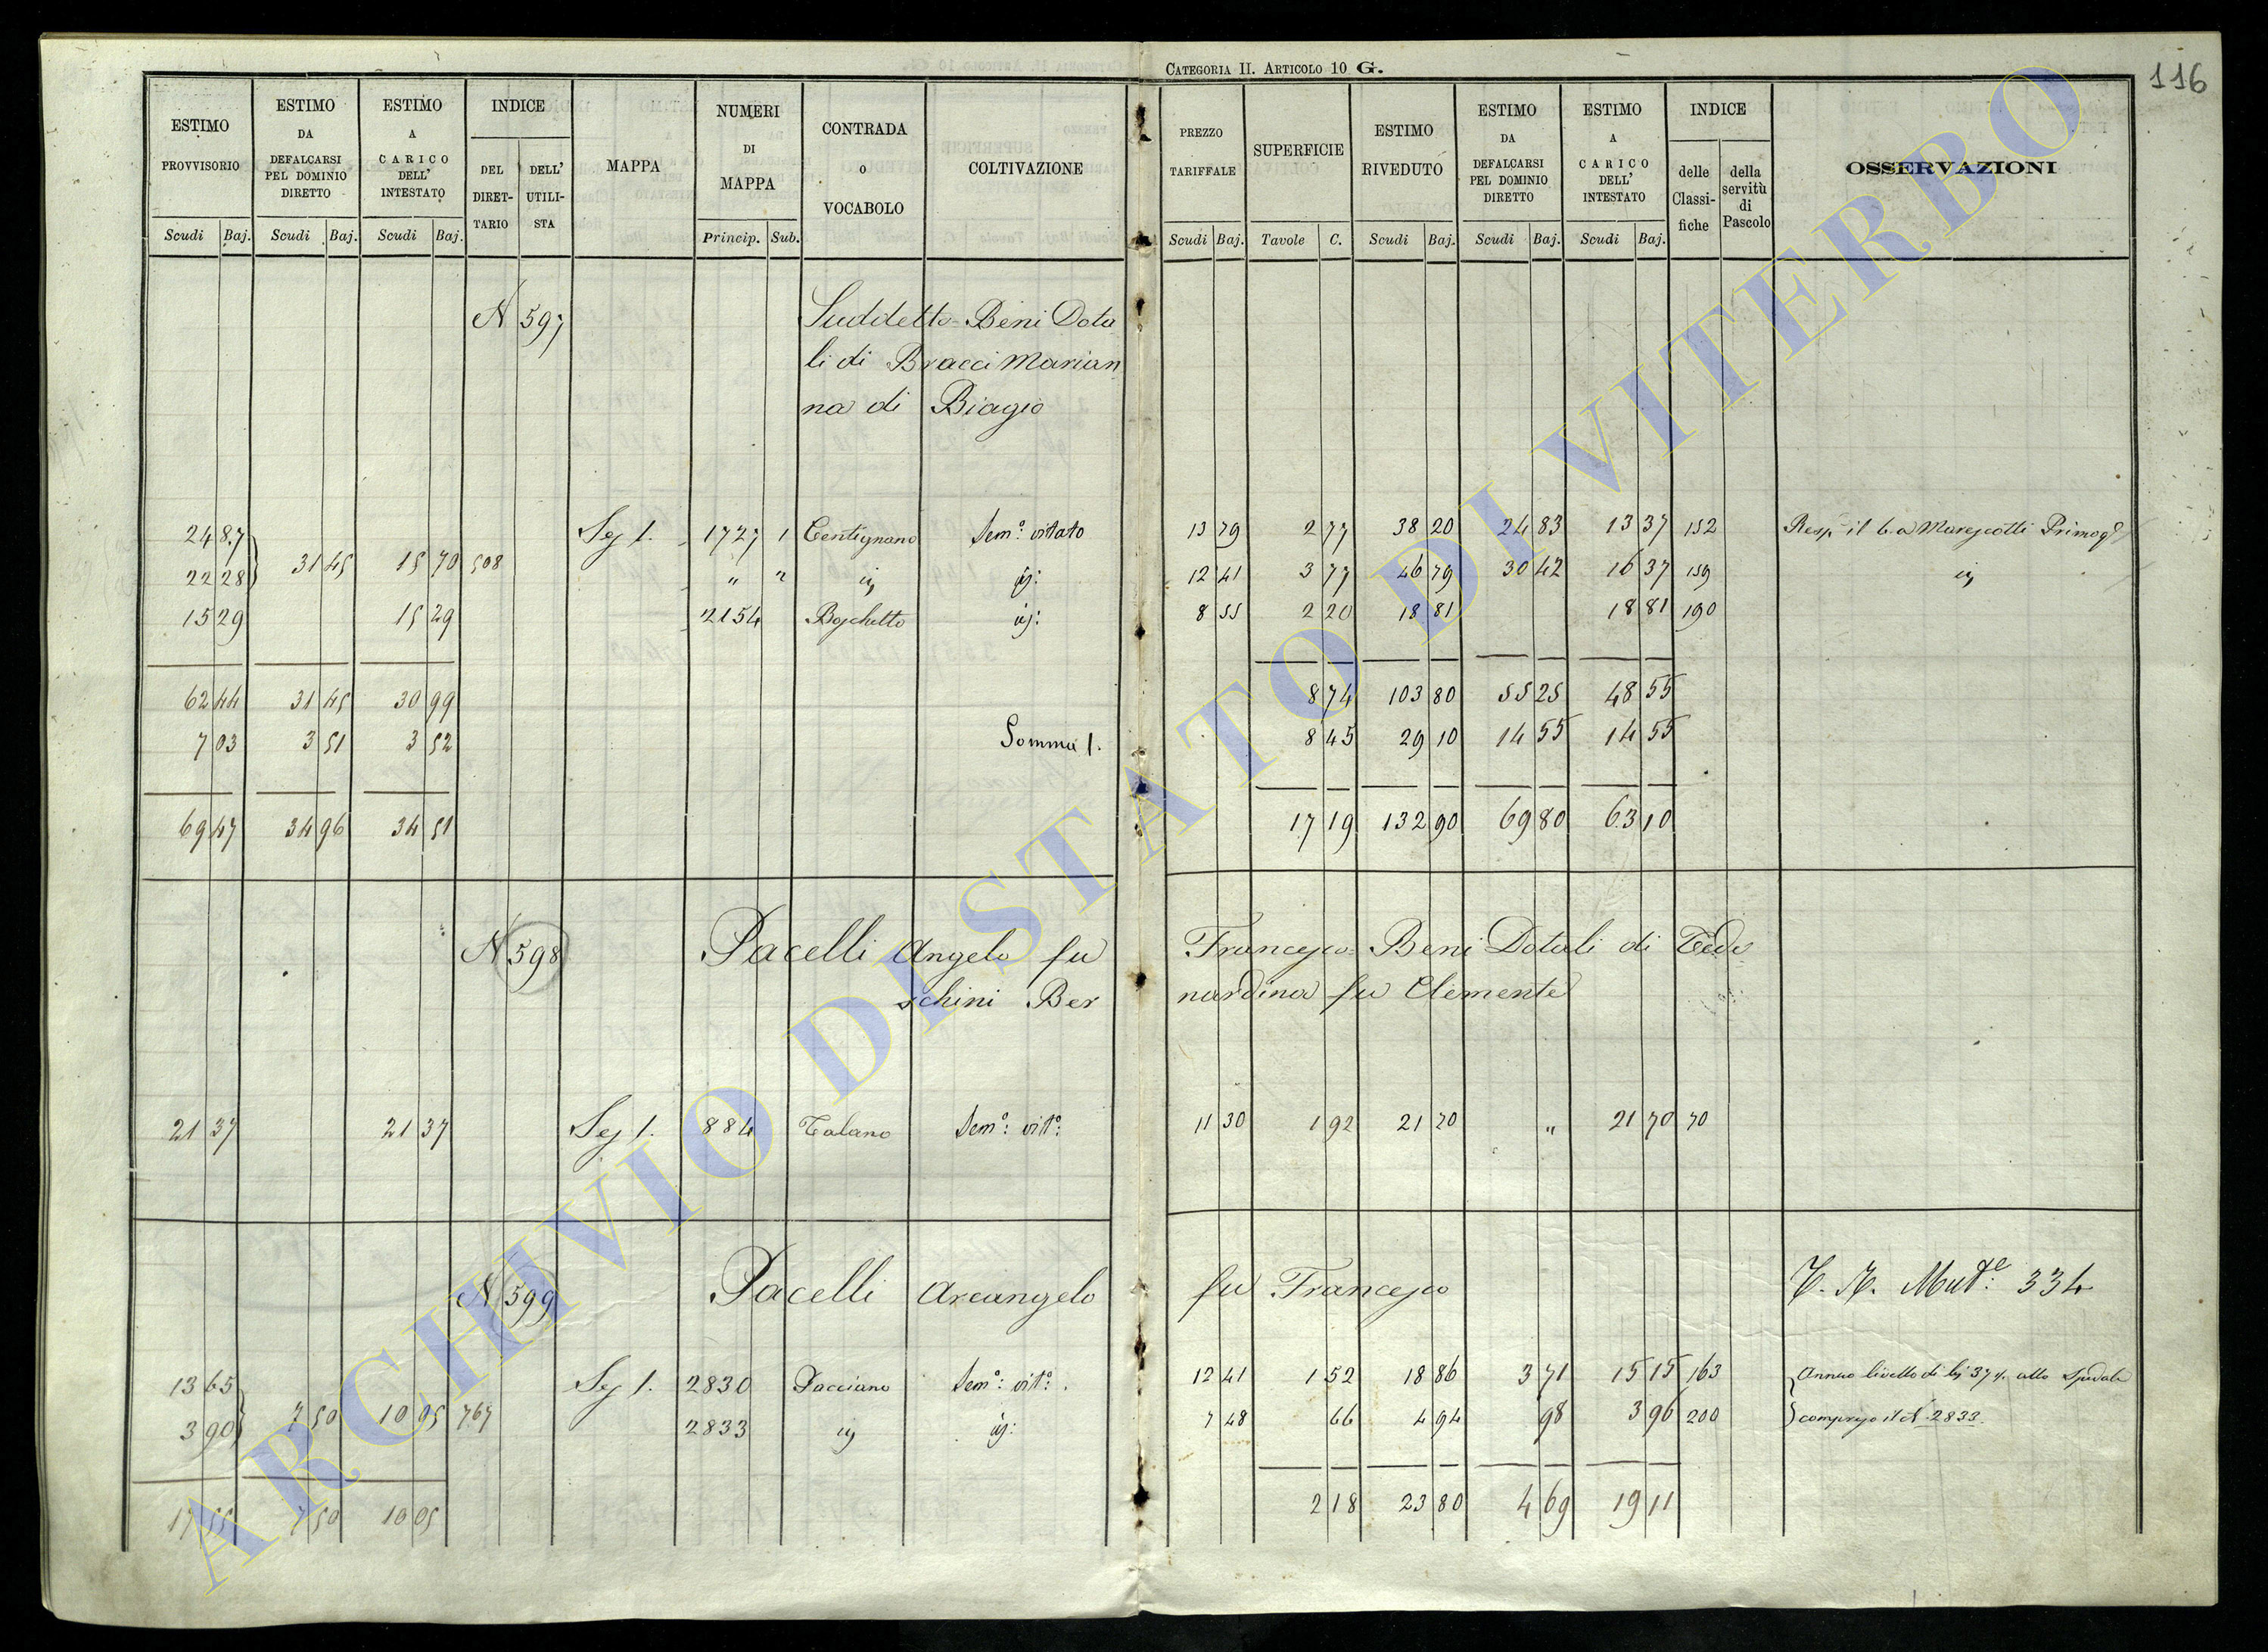 CATEGORIA II. ARTICOLO 10 G.
116
ESTIMO PROVVISORIO Scudi Baj.
ESTIMO DA DEFALCARSI PEL DOMINIO DIRETTO Scudi Baj.
ESTIMO A CARICO DELL' INTESTATO Scudi Baj.
INDICE DEL DIRETTARIO DELL' UTILISTA
MAPPA
NUMERI DI MAPPA Princip. Sub.
CONTRADA O VOCABOLO
COLTIVAZIONE
PREZZO TARIFFALE Scudi Baj.
SUPERFICIE Tavole C.
ESTIMO RIVEDUTO Scudi Baj.
ESTIMO DA DEFALCARSI PEL DOMINIO DIRETTO Scudi Baj.
ESTIMO A CARICO DELL' INTESTATO Scudi Baj.
INDICE delle Classifiche della servitù di Pascolo
OSSERVAZIONI
N 597 Suddetto - Beni Dota
li di Bracci Marian
na di Biagio
24 87 31 45 15 70 508 Sez 1. 1727 1 Centignano Sem.º vitato 13 79 2 77 38 20 24 83 13 37 152
22 28 " " id id: 12 41 3 77 46 79 30 42 16 37 159 id
15 29 15 29 2154 Boschetto id: 8 55 2 20 18 81 18 81 190
62 44 31 45 30 99 8 74 103 80 55 25 48 55
7 03 3 51 3 52 Somma 1. 8 45 29 10 14 55 14 55
69 47 34 96 34 51 17 19 132 90 69 80 63 10
N 598 Pacelli Angelo fu Francesco - Beni Dotali di Tede
schini Ber nardina fu Clemente
21 37 21 37 Sez 1. 884 Talano Sem.º: vit.º: 11 30 1 92 21 70 " 21 70 70
N 599 Pacelli Arcangelo fu Francesco
334
13 65 7 50 10 05 767 Sez 1. 2830 Pacciano Sem.º: vit.º: 12 41 1 52 18 86 3 71 15 15 163 Annuo livello di allo Spedale
3 90 2833 id id: 7 48 66 4 94 98 3 96 200 compreso il N. 2833.
17 55 7 50 10 05 2 18 23 80 4 69 19 11
ARCHIVIO DI STATO DI VITERBO